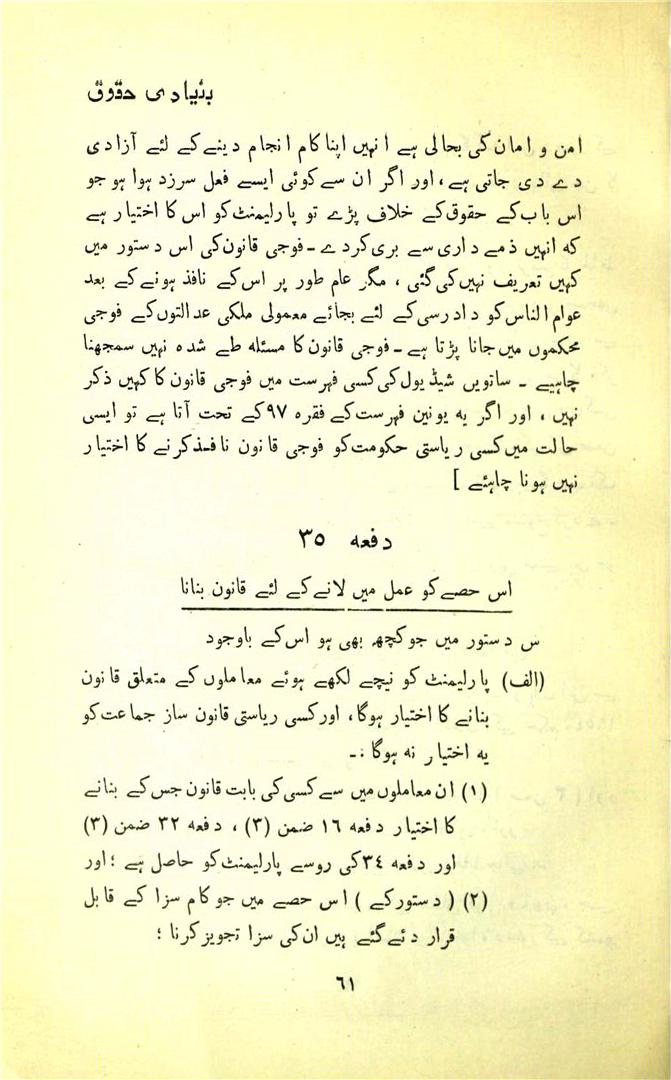 بنیادی حقوق
امن و امان کی بحالی ہے انہیں اپنا کام انجام دینے کے لئے آزادی
دے دی جاتی ہے، اور اگر ان سے کوئی ایسے فعل سرزد ہوا ہو جو
اس باب کے حقوق کے خلاف پڑے تو پارلیمنٹ کو اس کا اختیار ہے
کہ انہیں ذمے داری سے بری کر دے ـ فوجی قانون کی اس دستور میں
کہیں تعریف نہیں کی گئی ، مگر عام طور پر اس کے نافذ ہونے کے بعد
عوام الناس کو دادرسی کے لئے بجائے معمولی ملکی عدالتوں کے فوجی
محکموں میں جانا پڑتا ہے ـ فوجی قانون کا مسئلہ طے شدہ نہیں سمجھنا
چاہیے ـ ساتویں شیڈیول کی کسی فہرست میں فوجی قانون کا کہیں ذکر
نہیں ، اور اگر یہ یونین فہرست کے فقرہ ۹۷ کے تحت آتا ہے تو ایسی
حالت میں کسی ریاستی حکومت کو فوجی قانون نافذ کرنے کا اختیار
نہیں ہونا چاہئے ]
دفعہ ۳۵
اس حصے کو عمل میں لانے کے لئے قانون بنانا
س دستور میں جو کچھ بھی ہو اس کے باوجود
(الف) پارلیمنٹ کو نیچے لکھے ہوئے معاملوں کے متعلق قانون
بنانے کا اختیار ہوگا، اور کسی ریاستی قانون ساز جماعت کو
یہ اختیار نہ ہوگا :ـ
(۱) ان معاملوں میں سے کسی کی بابت قانون جس کے بنانے
کا اختیار دفعہ ۱۶ ضمن (۳) ، دفعہ ۳۲ ضمن (۳)
اور دفعہ ۳٤ کی روسے پارلیمنٹ کو حاصل ہے ؛ اور
(۲) ( دستور کے ) اس حصے میں جو کام سزا کے قابل
قرار دئے گئے ہیں ان کی سزا تجویز کرنا ؛
٦١